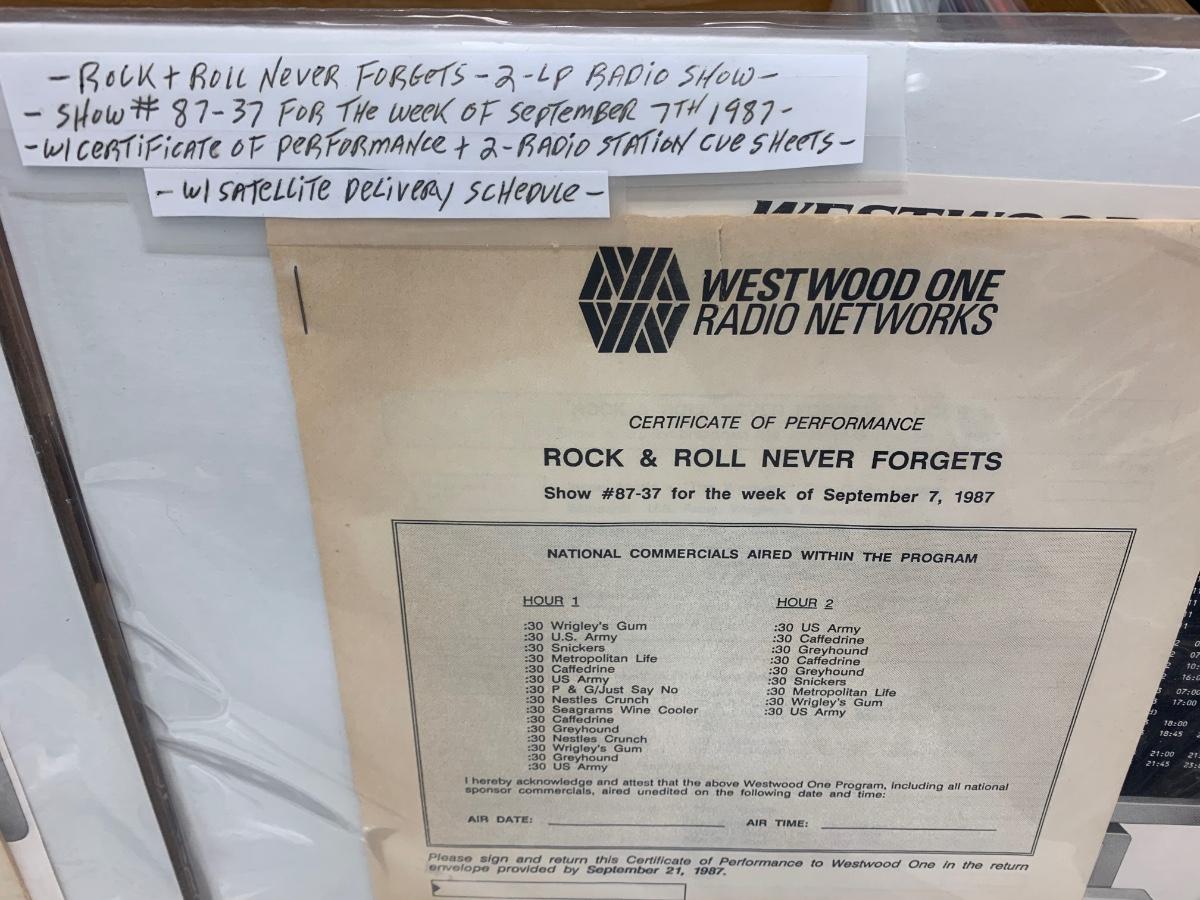 - ROCK + ROLL NEVER FORGETS - 2-LP RADIO SHOW -
- SHOW # 87-37 FOR THE WEEK OF SEPTEMBER 7TH 1987 -
- W/ CERTIFICATE OF PERFORMANCE + 2-RADIO STATION CUE SHEETS -
- W/ SATELLITE DELIVERY SCHEDULE -
WESTWOOD ONE
RADIO NETWORKS
CERTIFICATE OF PERFORMANCE
ROCK & ROLL NEVER FORGETS
Show #87-37 for the week of September 7, 1987
NATIONAL COMMERCIALS AIRED WITHIN THE PROGRAM
HOUR 1
:30 Wrigley's Gum
:30 U.S. Army
:30 Snickers
:30 Metropolitan Life
:30 Caffedrine
:30 US Army
:30 P & G/Just Say No
:30 Nestles Crunch
:30 Seagrams Wine Cooler
:30 Caffedrine
:30 Greyhound
:30 Nestles Crunch
:30 Wrigley's Gum
:30 Greyhound
:30 US Army
HOUR 2
:30 US Army
:30 Caffedrine
:30 Greyhound
:30 Caffedrine
:30 Greyhound
:30 Snickers
:30 Metropolitan Life
:30 Wrigley's Gum
:30 US Army
I hereby acknowledge and attest that the above Westwood One Program, including all national
sponsor commercials, aired unedited on the following date and time:
AIR DATE: AIR TIME:
Please sign and return this Certificate of Performance to Westwood One in the return
envelope provided by September 21, 1987.
07:00
17:00
18:00
18:45
21:00
21:45